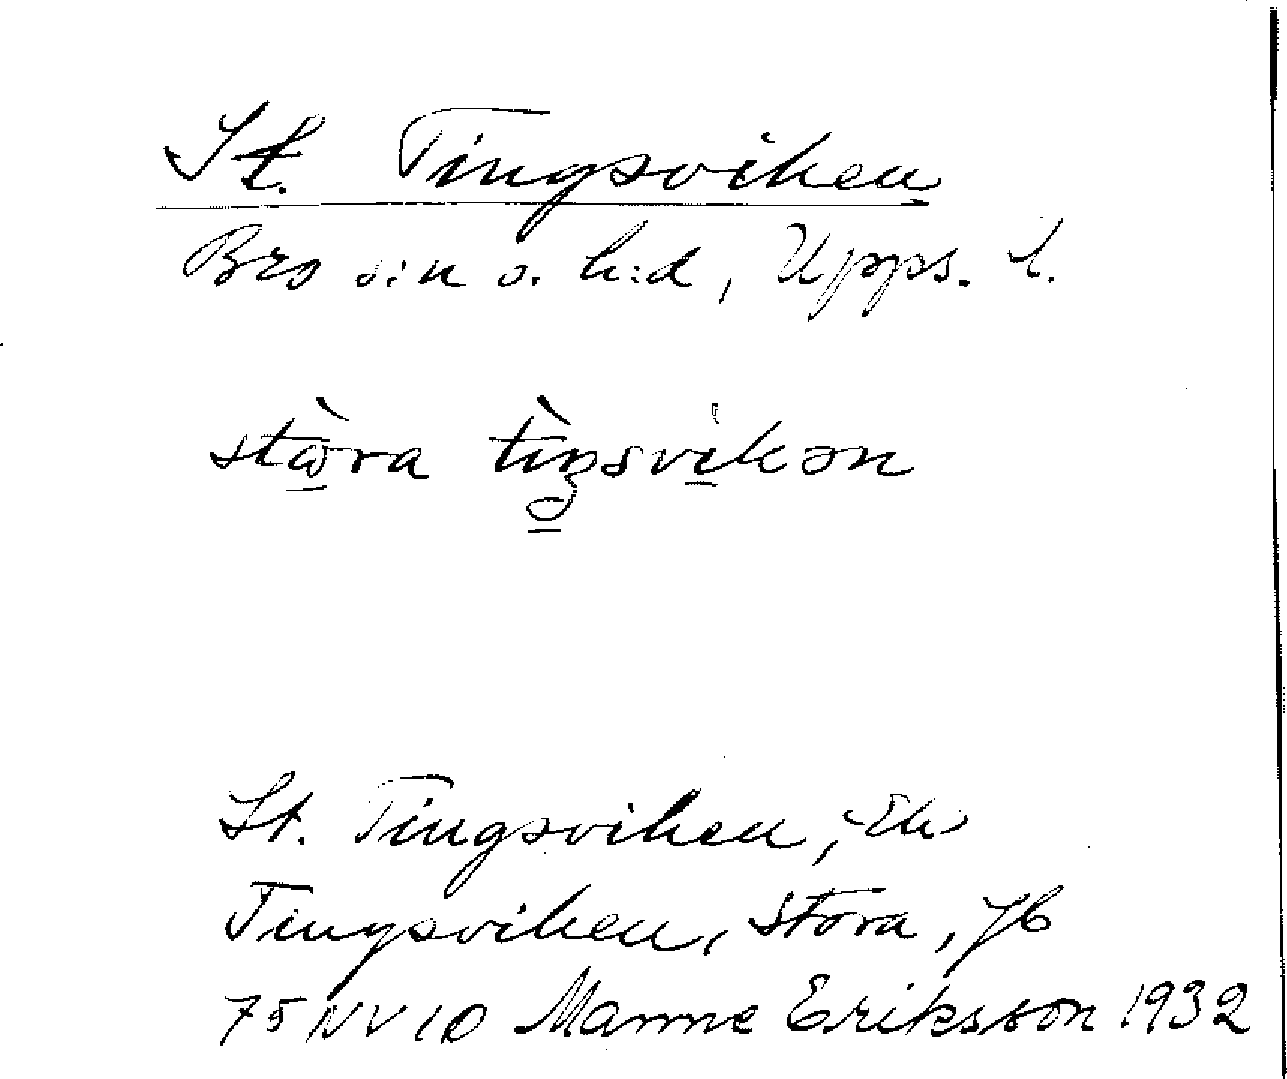 St. Tingsviken
Bro s:n o. h:d, Upps. l.
stòra tìŋsvikən
St. Tingsviken, Ek
Tingsviken, Stora, Jb
75 NV 10 Manne Eriksson 1932